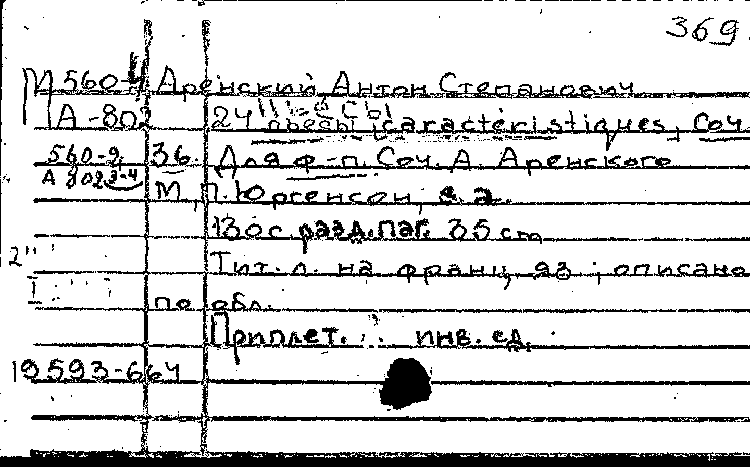 369
М 560-4 Аренский Антон Степанович
А-802 24 пьесы caractéristiques, Соч.
560-2 36. Для ф-п. Соч. А. Аренского
А 802 3-4 М., П. Юргенсон, s. a.
130 с. разд. паг. 35 cm
2 Тит. л. на франц, яз ; описано
I по обл.
Приплет. инв. ед.
19593-664